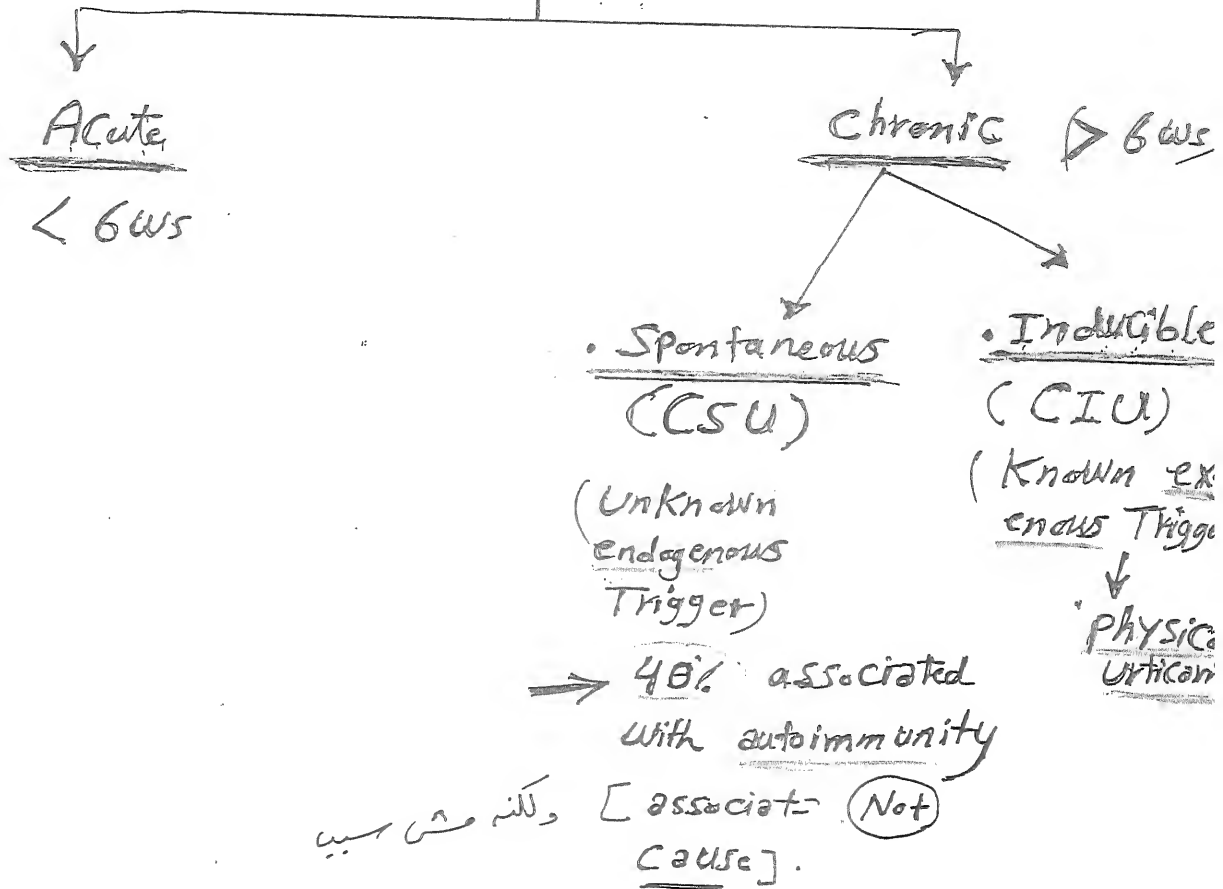 Acute
< 6ws
Chronic > 6ws
. Spontaneous
(CSU)
(Unknown
endogenous
Trigger)
→ 40% associated
with autoimmunity
[associat= Not
Cause].
ولكنه مش سبب
. Inducible
(CIU)
(Known ex
enous Trigge
↓
physica
urticari